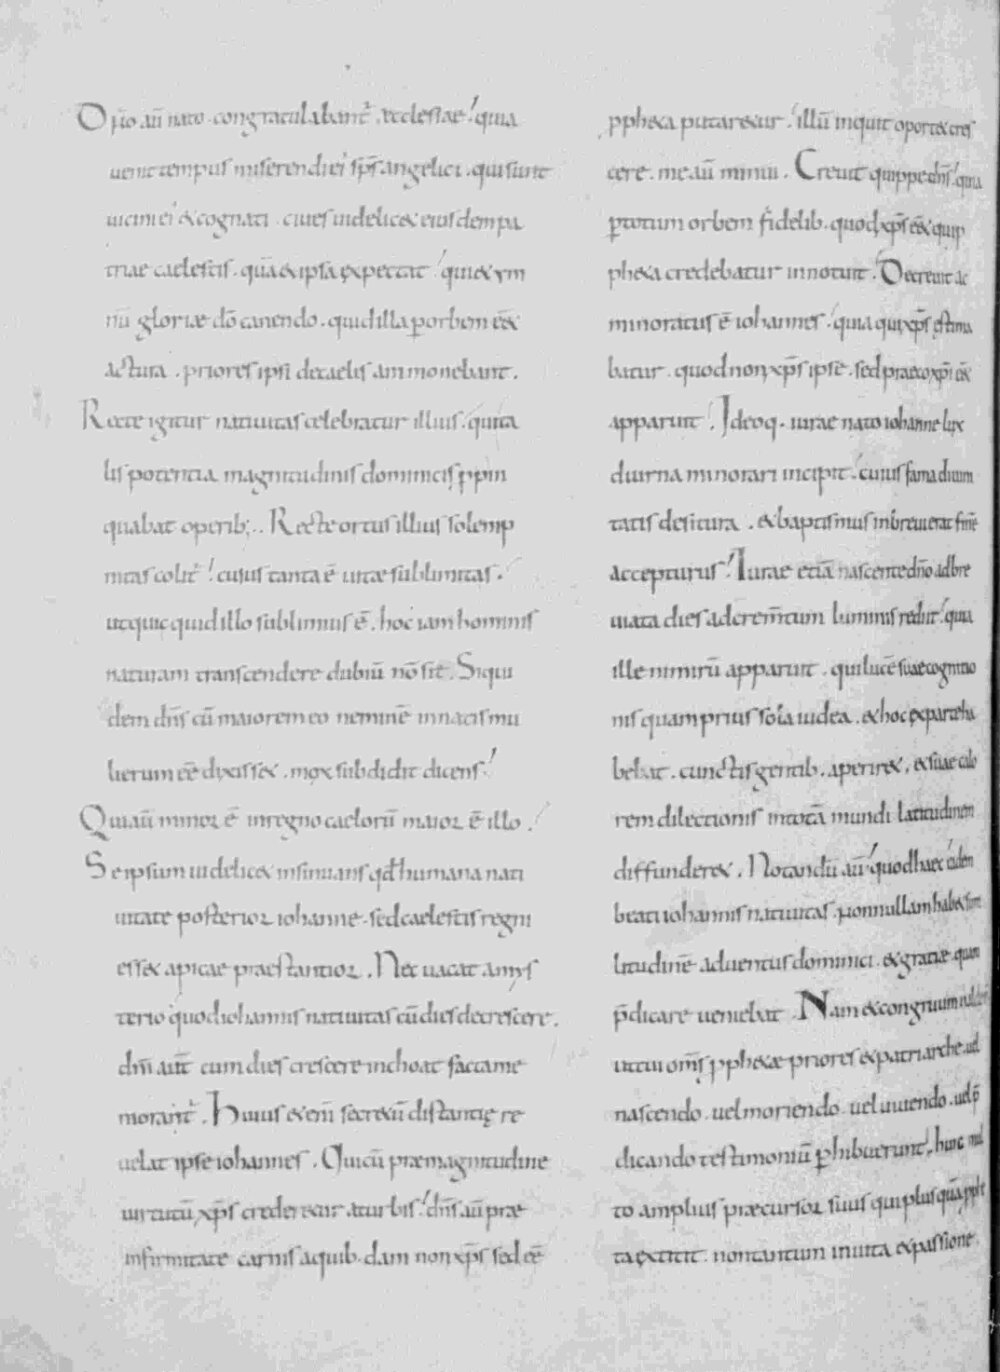 Quo aū nato · congratulabant᷑ · ecclesiae! quia
uenit tempus miserendi ei sp̄s angelici · qui sunt
uicini ei & cognati · ciues uidelic& eiusdem pa
triae caelestis · quā & ipsa expectat! qui & ym
nū gloriae dō canendo · quid illa ꝑ orbem ēe&
actura · priores ipsi de caelis ammonebant ·
Recte igitur natiuitas celebratur illius · qui ita
lis potentia magnitudinis dominicis ꝓpin
quabat operib; · Recte ortus illius solemp
nitas colit᷑! cuius tanta ē uitae sublimitas ·
ut quicquid illo sublimius ē · hoc iam hominis
naturam transcendere dubiū nō sit · Siqui
dem dn̄s cū maiorem eo neminē in natis mu
lierum ēe dixiss& · mox subdidit dicens!
Qui aū minor ē in regno caelorū maior ē illo ·
Se ipsum uidelic& insinuans qđ humana nati
uitate posterior iohanne · sed caelestis regni
ess& apicae praestantior · Nec uacat a mys
terio quod iohannis natiuitas cū dies decrescere ·
dn̄i aūt cum dies crescere inchoat faccame
morant᷑ · Huius & enī secr&ū distantię re
uelat ipse iohannes · Qui cū prae magnitudine
uirtutū xp̄s creder&ur a turbis! dn̄s aū prae
infirmitate carnis a quib·dam non xp̄s sed ēe
ꝓph&a putar&ur! illū inquit oport& cres
cere · me aū minui · Creuit quippe dn̄s! quia
ꝑ totum orbem fidelib · quod xp̄s ēe& qui ꝓ
ph&a credebatur innotuit! Decreuit ac
minoratus ē iohannes! quia qui xp̄s ęstima
batur · quod non xp̄s ipse · sed praeco xp̄i ēe&
apparuit! Ideoq · iurae nato iohanne lux
diurna minorari incipit! cuius fama diuini
tatis desitura · & baptismus in breui erat finē
accepturus! Iurae etiā nascente dn̄o adbre
uiata dies ad crem̄tum luminis rediit! quia
ille nimirū apparuit · qui lucē suae cognitio
nis quam prius sola iudea · & hoc ex parte ha
bebat · cunctis gentib · aperir& · & suae calo
rem dilectionis in totā mundi latitudinem
diffunder& · Notandū aū! quod haec eadem
beati iohannis natiuitas · nonnullam hab& simi
litudinē aduentus dominici · & gratiae quam
p̄dicare ueniebat · Nam & congruum
uti cui om̄s ꝓph&ae priores & patriarche uel
nascendo · uel moriendo · uel uiuendo · uel p̄
dicando testimoniū ꝑhibuerunt! hunc mul
to amplius praecursor suus qui plus quā ꝓph&
ta extitit · non tantum in uita & passione ·